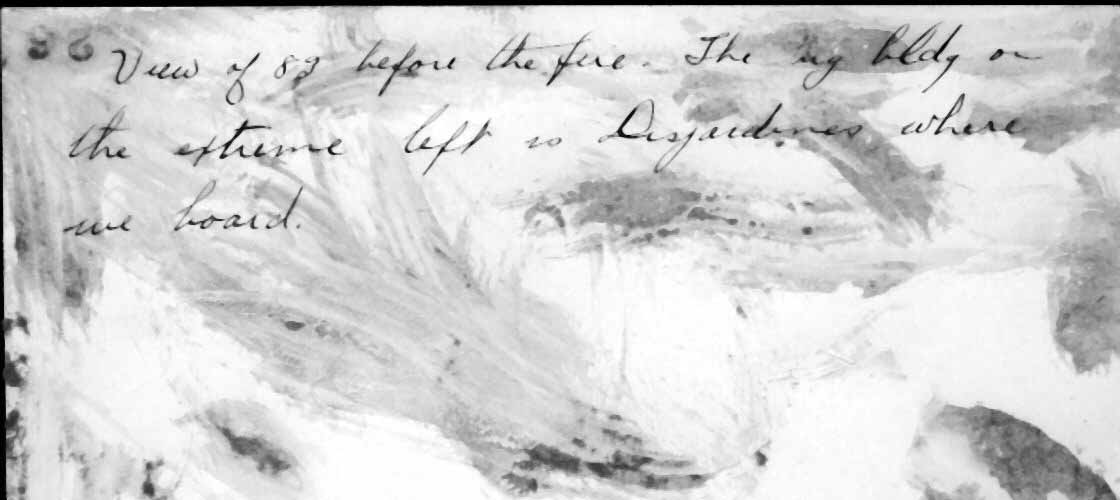 View of 83 before the fire. The big bldg on
the extreme left is Desjardines where
we board.